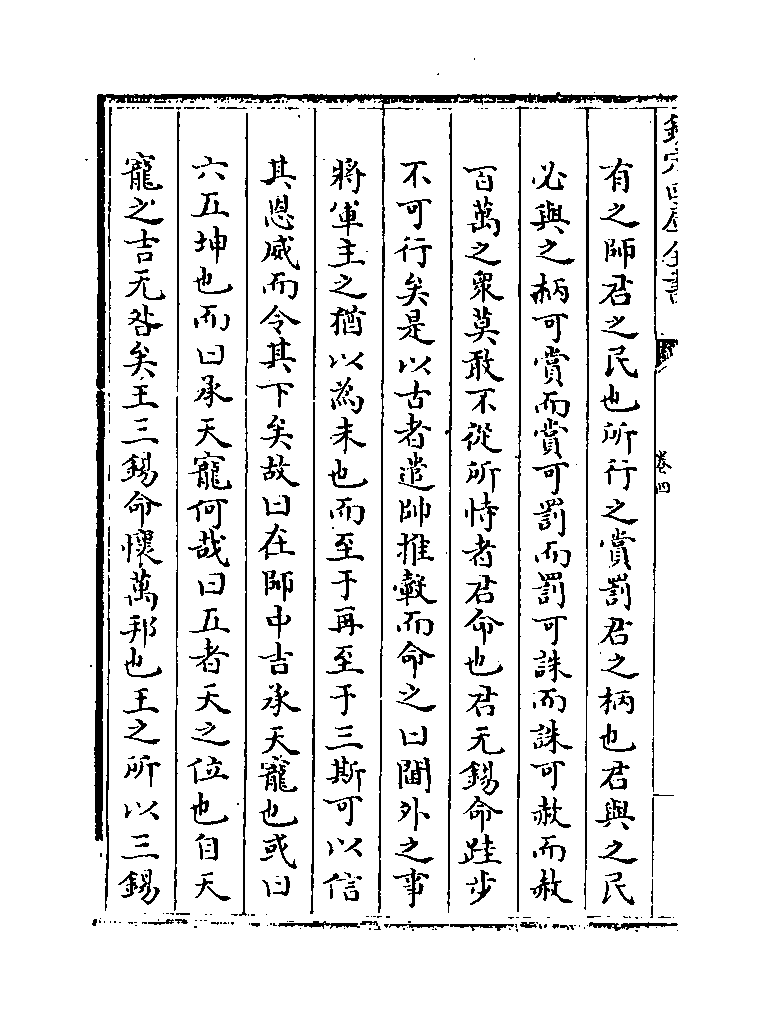 欽定四庫全書
卷四
有之師君之民也所行之賞罰君之柄也君與之民
必與之柄可賞而賞可罰而罰可誅而誅可赦而赦
百萬之衆莫敢不從所恃者君命也君无錫命跬步
不可行矣是以古者遣帥推轂而命之曰閫外之事
將軍主之猶以為未也而至于再至于三斯可以信
其恩威而令其下矣故曰在師中吉承天寵也或曰
六五坤也而曰承天寵何哉曰五者天之位也自天
寵之吉无咎矣王三錫命懷萬邦也王之所以三錫